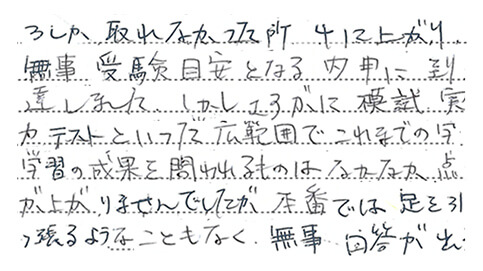 3しか、取れなかった所 4に上がり、
無事 受験目安となる 内申に 到
達しました。しかし さすがに 模試 実
力テストといった 広範囲でこれまでの学
学習の成果を問われるものは なかなか 点
が上がりませんでしたが 本番では 足を引
っ張るようなこともなく、無事 回答が出